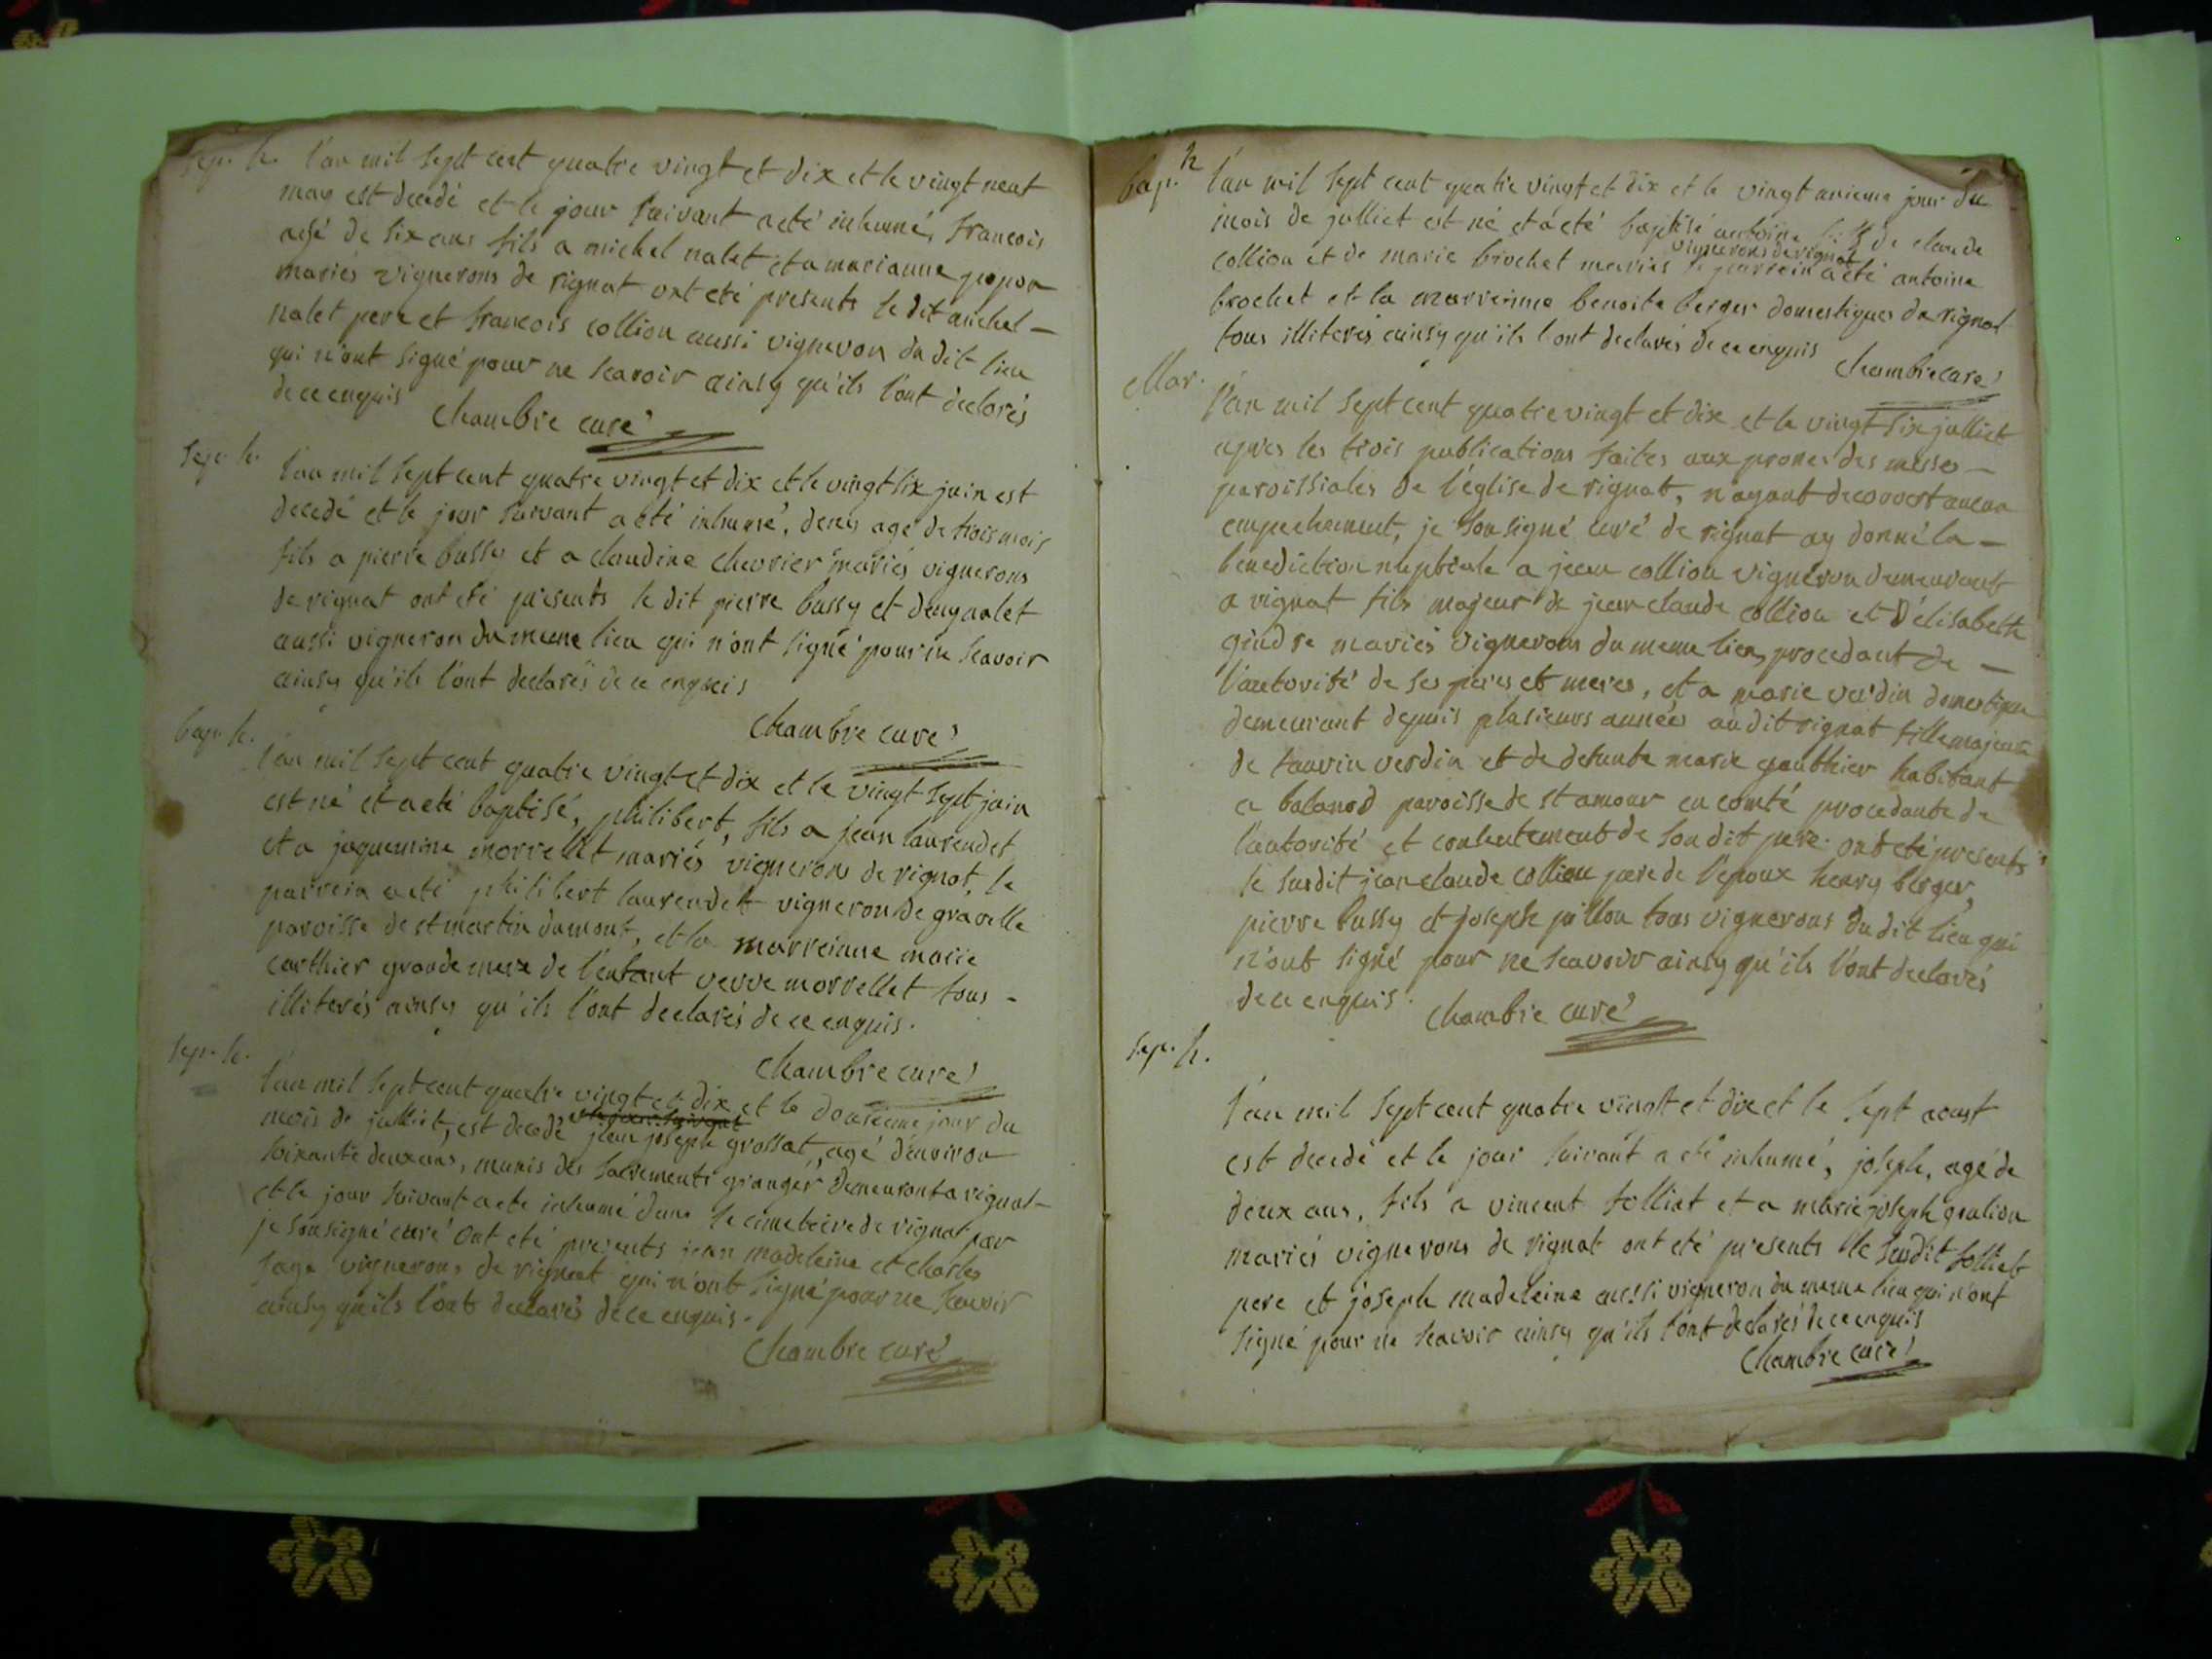 Sep. h. l'an mil sept cent quatre vingt et dix et le vingt neuf
may est decedé et le jour suivant a eté inhumé, francois
agé de six ans fils a michel nalet et a marianne popon
mariés vignerons de rignat ont eté presents le dit michel –
nalet pere et francois collion aussi vigneron du dit lieu
qui n'ont signé pour ne scavoir ainsy qu'ils l'ont declarés
de ce enquis Chambre curé
Sep. h. l'an mil sept cent quatre vingt et dix et le vingt six juin est
decedé et le jour suivant a eté inhumé, denis agé de trois mois
fils a pierre bussy et a claudine chevrier mariés vignerons
de rignat ont eté presents le dit pierre bussy et deny nalet
aussi vigneron du meme lieu qui n'ont signé pour ne scavoir
ainsy qu'ils l'ont declarés de ce enquis
Chambre curé
bap. h. l'an mil sept cent quatre vingt et dix et le vingt sept juin
est né et a eté baptisé, philibert, fils a jean laurendet
et a jaquemine morrellet mariés vignerons de rignat, le
parrein a eté philibert laurendet vigneron de gravelle
paroisse de st martin dumont, et la marreinne marie
carthier grande mere de l'enfant veuve morrellet tous –
illiterés ainsy qu'ils l'ont declarés de ce enquis.
Chambre curé
Sep. h. l'an mil sept cent quatre vingt et dix et le dousieme jour du
mois de julliet, est decedé et le jour suivant jean joseph grossat, agé denviron
soixante deux ans, munis des sacrements granger demeurant a rignat –
et le jour suivant a eté inhumé dans le cimetiere de rignat par
je sousigné curé ont eté presents jean madeleine et charles
sage vignerons de rignat qui n'ont signé pour ne scavoir
ainsy qu'ils l'ont declarés de ce enquis.
Chambre curé
bap. h l'an mil sept cent quatre vingt et dix et le vingt unieme jour du
mois de julliet est né et a eté baptisé antoine fils de claude
collion et de marie brochet mariés vignerons de rignat le parrein a eté antoine
brochet et la marreinne benoite berger domestiques de rignat
tous illiterés ainsy qu'ils l'ont declarés de ce enquis
Chambre curé
Mar. l'an mil sept cent quatre vingt et dix et le vingt six julliet
apres les trois publications faites aux prones des messes –
paroissiales de l'église de rignat, n'ayant decouvert aucun
empechement, je sousigné curé de rignat ay donné la –
benediction nuptiale a jean collion vigneron demeurant
a rignat fils majeur de jean claude collion et d'elisabeth
gindre mariés vignerons du meme lieu, procedant de –
l'autorité de ses peres et meres, et a marie verdin domestique
demeurant depuis plusieurs années audit rignat fille majeure
de taurin verdin et de defunte marie gauthier habitant
a balanod paroisse de st amour en comté procedante de
l'autorité et contentement de son dit pere. ont eté presents
le susdit jean claude collion pere de l'epoux henry berger,
pierre bussy et joseph pillon tous vignerons du dit lieu qui
n'ont signé pour ne scavoir ainsy qu'ils l'ont declarés
de ce enquis. Chambre curé
Sep. h.
l'an mil sept cent quatre vingt et dix et le sept aoust
est decedé et le jour suivant a eté inhumé, joseph, agé de
deux ans, fils a vincent folliet et a marie joseph goulion
mariés vignerons de rignat ont eté presents le susdit folliet
pere et joseph madeleine aussi vigneron du meme lieu qui n'ont
signé pour ne scavoir ainsy qu'ils l'ont declarés de ce enquis
Chambre curé